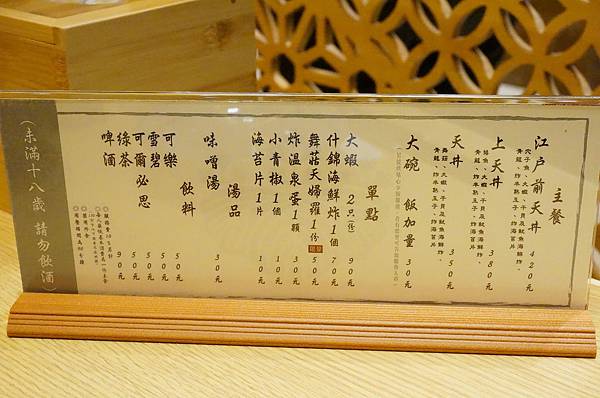 主餐
江戶前天丼 420元
穴子魚、大蝦、干貝及魷魚海鮮炸、
青龍、炸半熟玉子、炸海苔片
上天丼 380元
鱚魚、大蝦、干貝及魷魚海鮮炸、
青龍、炸半熟玉子、炸海苔片
天丼 350元
舞菇、大蝦、干貝及魷魚海鮮炸、
青龍、炸半熟玉子、炸海苔片
大碗 飯加量 30元
單點
大蝦 2只(份) 90元
什錦海鮮炸1個 70元
舞菇天婦羅1份 50元
炸溫泉蛋1顆 30元
小青椒1個 10元
海苔片1片 10元
湯品
味噌湯 30元
飲料
可樂 50元
雪碧 50元
可爾必思 50元
綠茶 50元
啤酒 90元
(未滿十八歲 請勿飲酒)